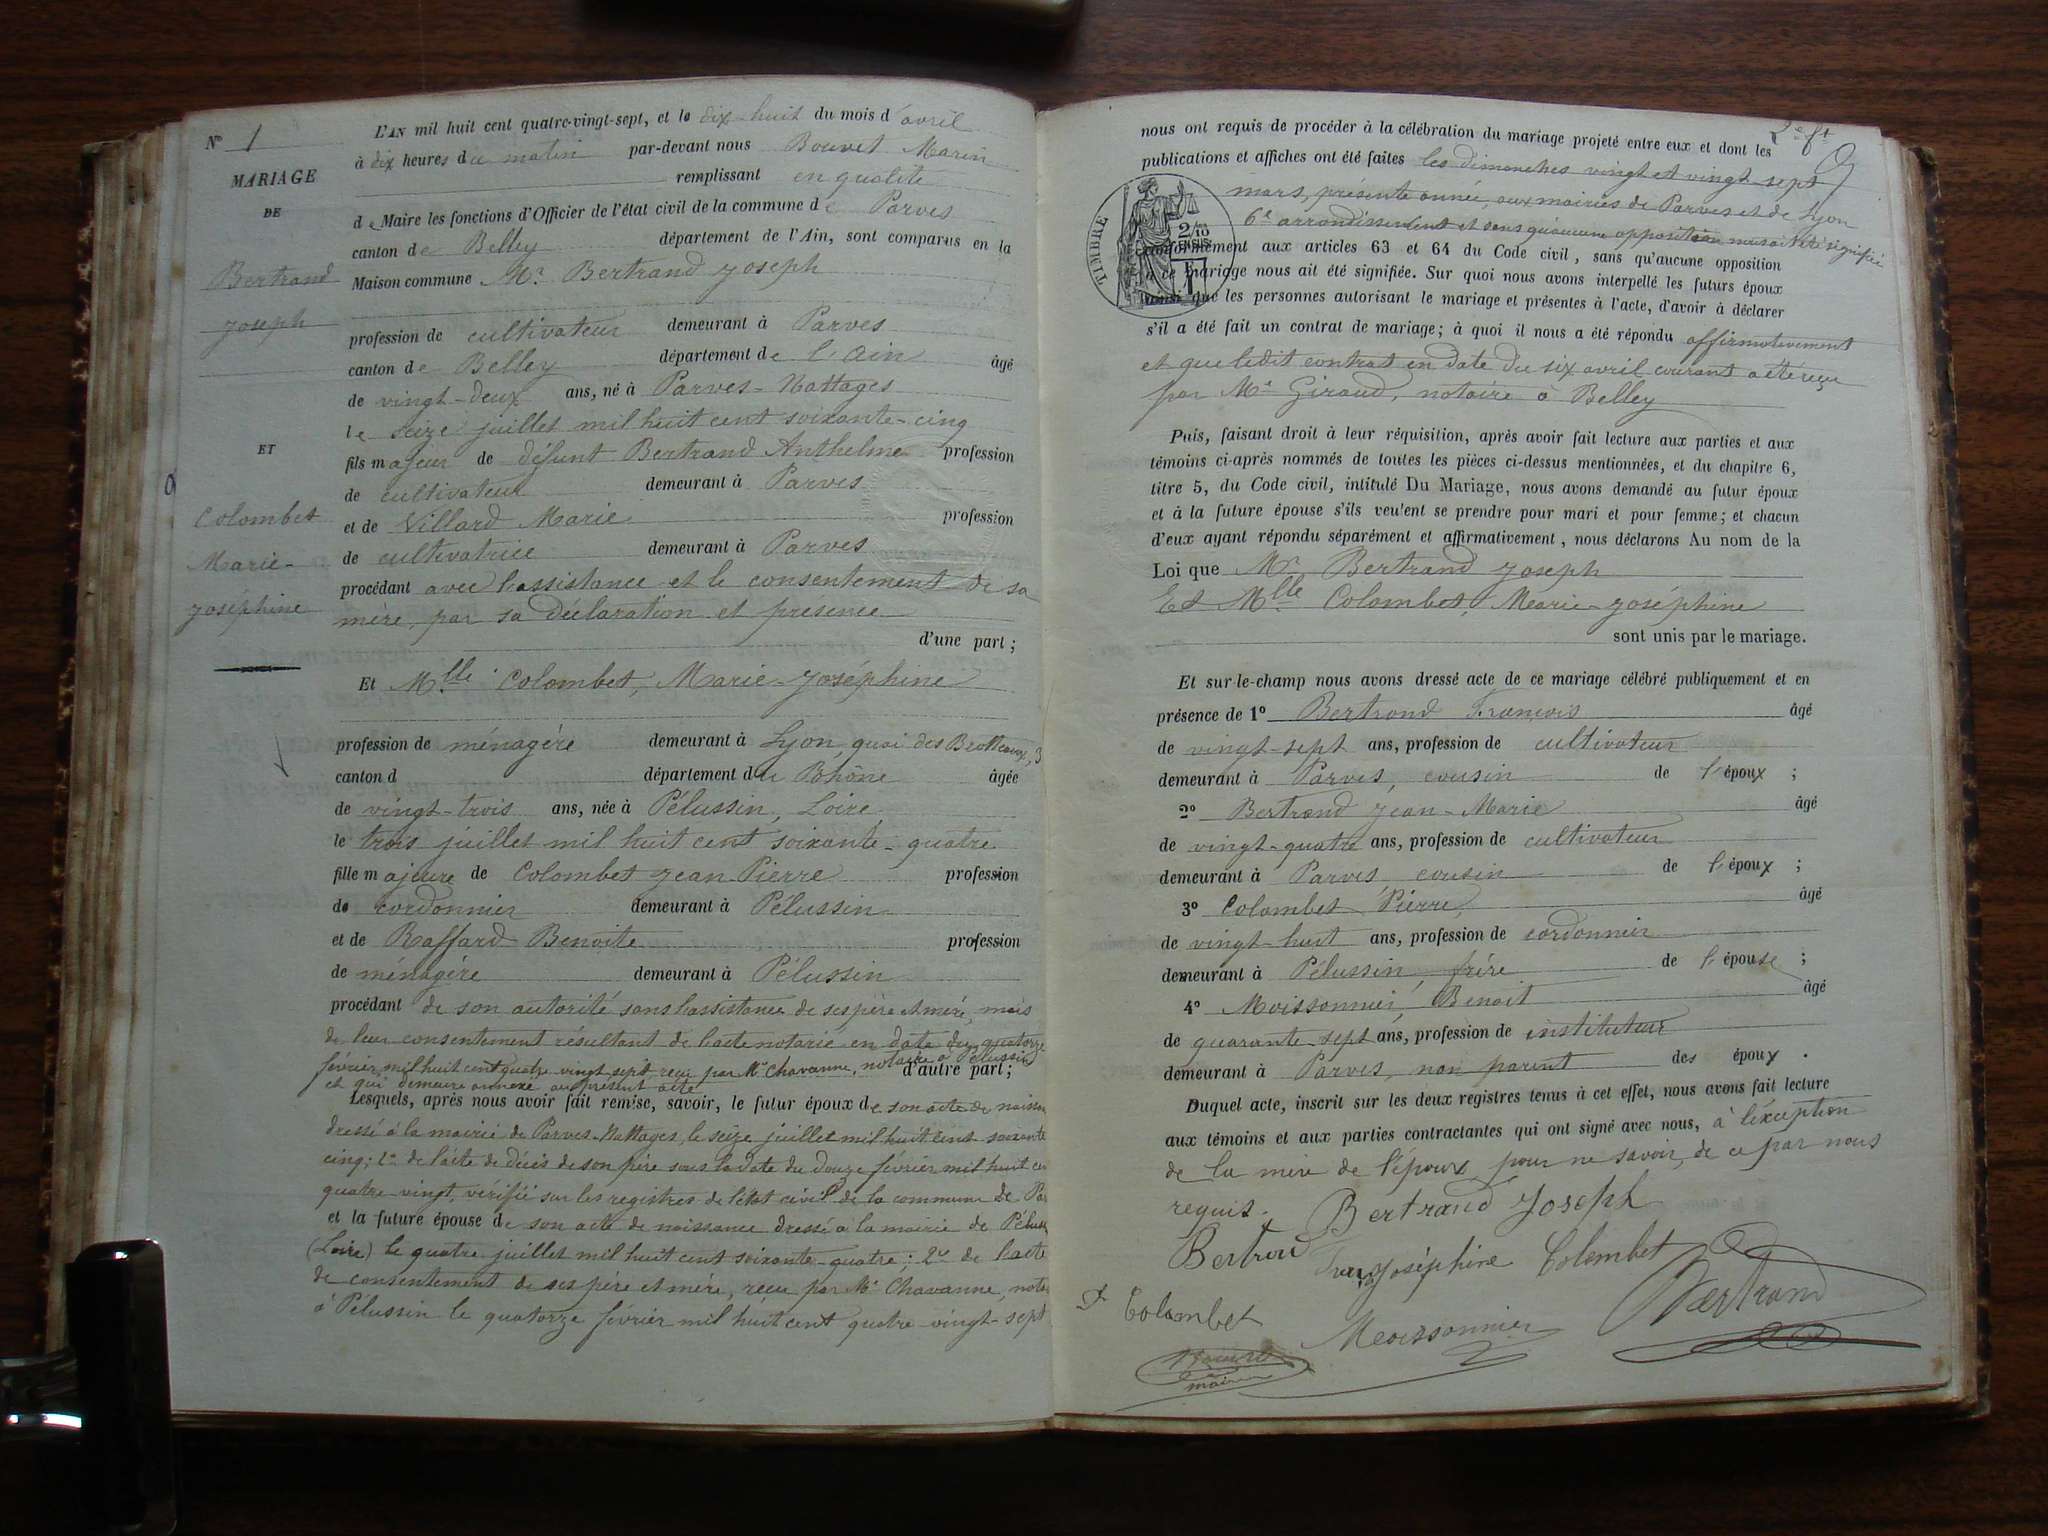 N° 1
MARIAGE
DE
Bertrand
Joseph
ET
Colombet
Marie-
Joséphine
L'AN mil huit cent quatre-vingt-sept, et le dix-huit du mois d'avril
à dix heures du matin par-devant nous Bouvet Marin
remplissant en qualité
de Maire les fonctions d'Officier de l'état civil de la commune de Parves
canton de Belley département de l'Ain, sont comparus en la
Maison commune Mr. Bertrand Joseph
profession de cultivateur demeurant à Parves
canton de Belley département de l'Ain âgé
de vingt-deux ans, né à Parves-Nattages
le seize juillet mil huit cent soixante-cinq
fils majeur de défunt Bertrand Anthelme profession
de cultivateur demeurant à Parves
et de Villard Marie profession
de cultivatrice demeurant à Parves
procédant avec l'assistance et le consentement de sa
mère, par sa déclaration et présence
d'une part ;
Et Mlle Colombet, Marie-Joséphine
profession de ménagère demeurant à Lyon, quai des Brotteaux, 3
canton d département du Rhône âgée
de vingt-trois ans, née à Pélussin, Loire
le trois juillet mil huit cent soixante-quatre
fille majeure de Colombet Jean-Pierre profession
de cordonnier demeurant à Pélussin
et de Raffard Benoite profession
de ménagère demeurant à Pélussin
procédant de son autorité sans l'assistance de ses père et mère, mais
de leur consentement résultant de l'acte notarié en date du quatorze
février mil huit cent quatre vingt sept, reçu par Me Chavanne, notaire à Pélussin
et qui demeure annexé au présent acte d'autre part ;
Lesquels, après nous avoir fait remise, savoir, le futur époux de son acte de naissan
dressé à la mairie de Parves-Nattages, le seize juillet mil huit cent soixante
cinq ; 2° de l'acte de décès de son père sous la date du douze février mil huit cen
quatre-vingt, vérifié sur les registres de l'état civil de la commune de Par
et la future épouse de son acte de naissance dressé à la mairie de Péluss
(Loire) le quatre juillet mil huit cent soixante-quatre ; 2° de l'acte
de consentement de ses père et mère, reçu par Me Chavanne, notai
à Pélussin le quatorze février mil huit cent quatre-vingt-sept
nous ont requis de procéder à la célébration du mariage projeté entre eux et dont les
publications et affiches ont été faites les dimanches vingt et vingt-sept
mars, présente année, aux mairies de Parves et de Lyon
6e arrondissement et sans qu'aucune opposition nous ait été signifiée
TIMBRE
2/10
conformément aux articles 63 et 64 du Code civil, sans qu'aucune opposition
à ce mariage nous ait été signifiée. Sur quoi nous avons interpellé les futurs époux
ainsi que les personnes autorisant le mariage et présentes à l'acte, d'avoir à déclarer
s'il a été fait un contrat de mariage ; à quoi il nous a été répondu affirmativement
et que ledit contrat en date du six avril courant a été reçu
par Me Giraud, notaire à Belley
Puis, faisant droit à leur réquisition, après avoir fait lecture aux parties et aux
témoins ci-après nommés de toutes les pièces ci-dessus mentionnées, et du chapitre 6,
titre 5, du Code civil, intitulé Du Mariage, nous avons demandé au futur époux
et à la future épouse s'ils veulent se prendre pour mari et pour femme ; et chacun
d'eux ayant répondu séparément et affirmativement, nous déclarons Au nom de la
Loi que Mr. Bertrand Joseph
Et Mlle Colombet, Marie-Joséphine
sont unis par le mariage.
Et sur-le-champ nous avons dressé acte de ce mariage célébré publiquement et en
présence de 1° Bertrand François âgé
de vingt-sept ans, profession de cultivateur
demeurant à Parves, cousin de l'époux ;
2° Bertrand Jean-Marie âgé
de vingt-quatre ans, profession de cultivateur
demeurant à Parves cousin de l'époux ;
3° Colombet Pierre, âgé
de vingt-huit ans, profession de cordonnier
demeurant à Pélussin, frère de l'épouse ;
4° Moissonnier, Benoit âgé
de quarante-sept ans, profession de instituteur
demeurant à Parves, non parent des époux.
Duquel acte, inscrit sur les deux registres tenus à cet effet, nous avons fait lecture
aux témoins et aux parties contractantes qui ont signé avec nous, à l'exception
de la mère de l'époux pour ne savoir, de ce par nous
requis.
Bertrand Joseph
Joséphine Colombet
Colombet
Moissonnier
Bertrand
maire